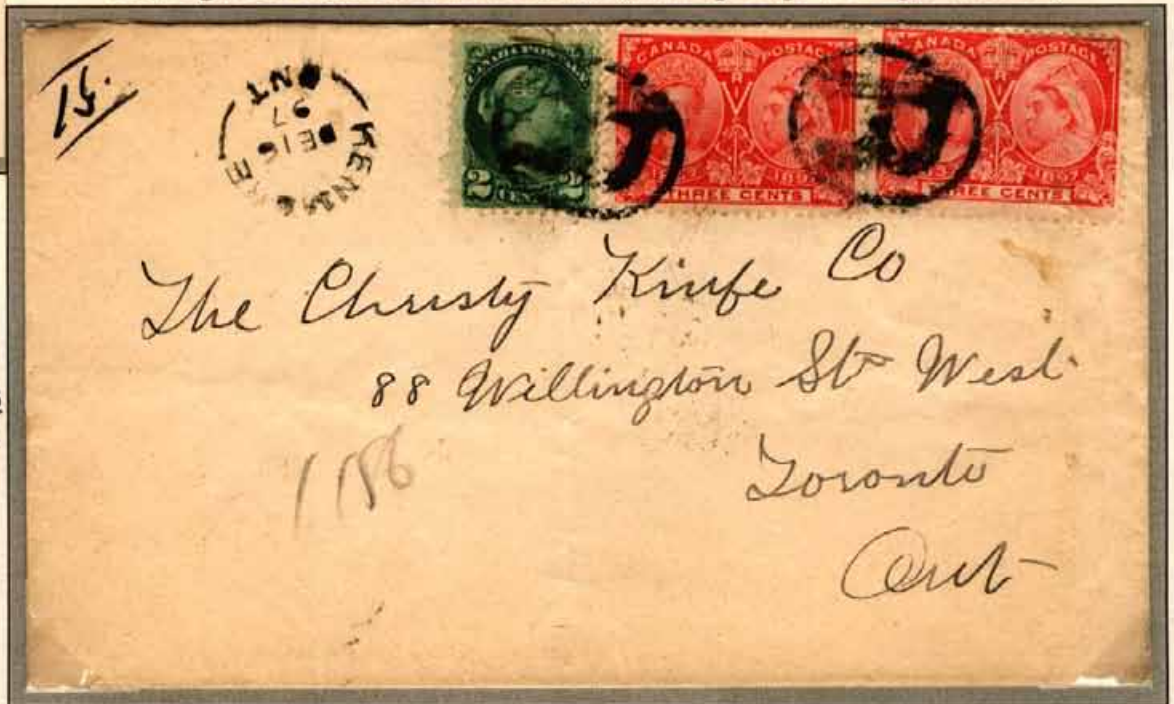 15.
DE 16
97
ONT
CANADA POSTAGE
2 CENTS 2
CANADA POSTAGE
1897
THREE CENTS
CANADA POSTAGE
1897
THREE CENTS
R
R
The Christy Kinfe Co
88 Willington St West
Toronto
Ont
1186